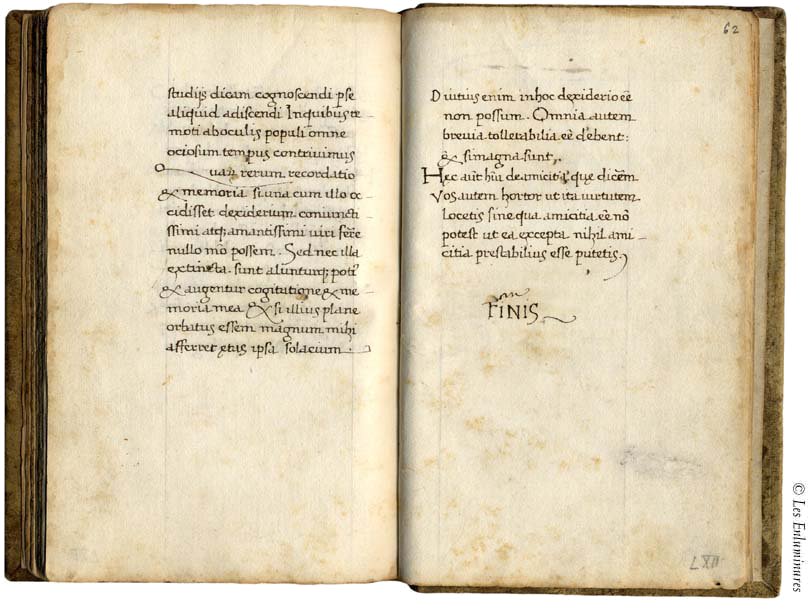 studijs dicam cognoscendi pse
aliquid adiscendi Inquibus re
moti aboculis populi omne
ociosum tempus contrivimus
Quarr rerum recordatio
& memoria si una cum illo oc
cidisset dexiderium coniuncti
ssimi atq; amantissimi viri ferre
nullo mo possem. Sed nec illa
extincta sunt aluntur q; poti
& augentur cogitatione & me
moria mea & si illius plane
orbatus essem magnum mihi
afferret ętas ipsa solacium
62
Diutius enim in hoc dexiderio eē
non possum. Omnia autem
brevia tollerabilia eē debent:
& si magna sunt.
Hec aūt hūi de amicitia quę dicēm
Vos autem hortor ut ita virtutem
locetis sine qua amicitia eē nō
potest ut ea excepta nihil ami
citia prestabilius esse putetis
FINIS
LXII
© Les Enluminures